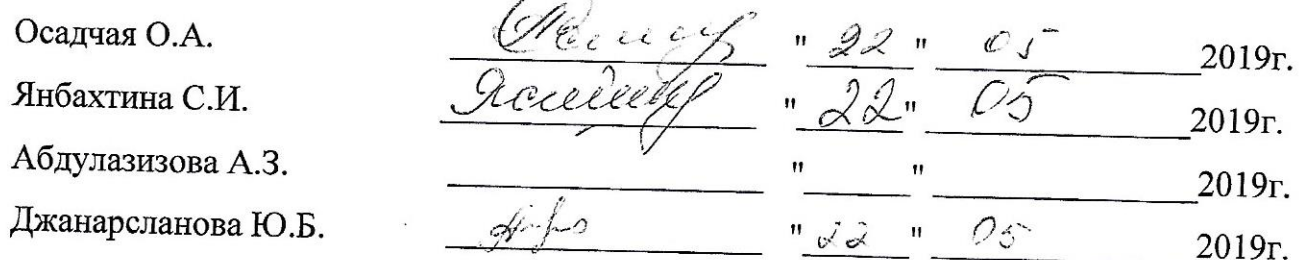 Осадчая О.А. " 22 " 05 2019г.
Янбахтина С.И. " 22 " 05 2019г.
Абдулазизова А.З. " " 2019г.
Джанарсланова Ю.Б. " 22 " 05 2019г.